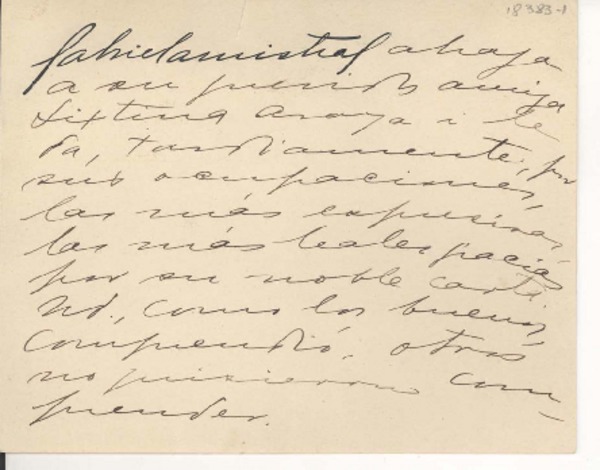 18383-1
Gabriela Mistral abraza
a su querida amiga
Sixtina Araya i le
da, tardiamente, por
sus ocupaciones,
las más expresivas,
las más leales gracias
por su noble carta.
Ud., como los buenos,
comprendió. Otros
no quisieron com-
prender.